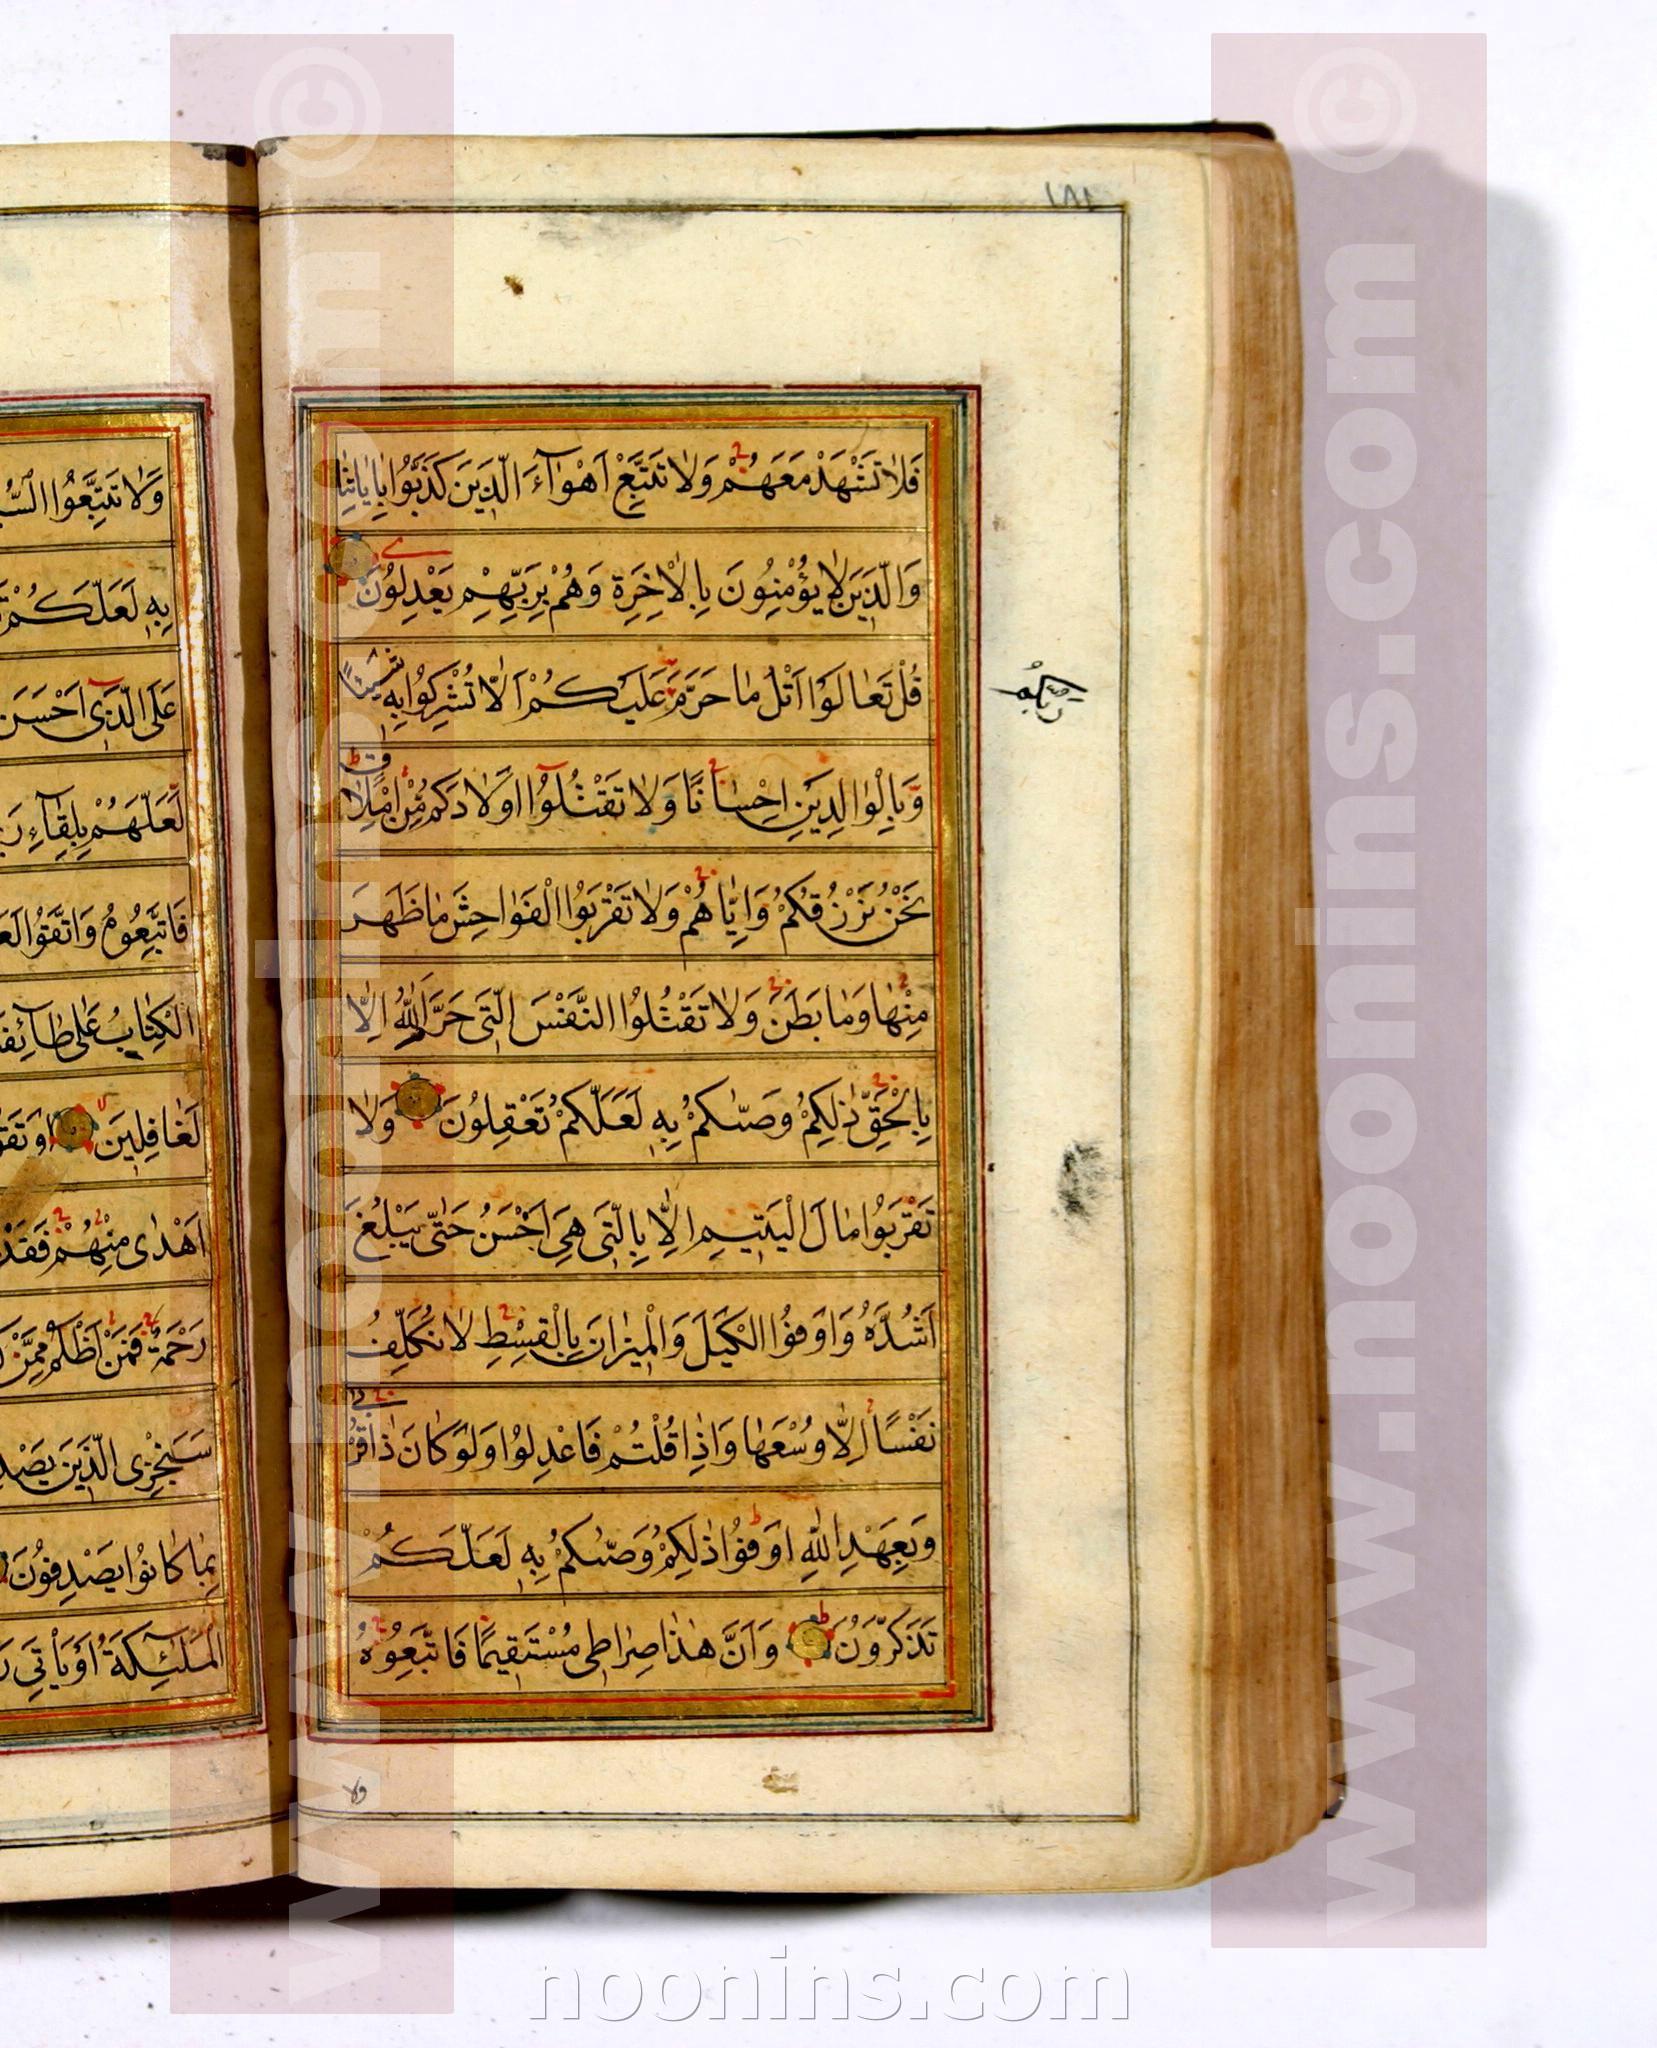 ١٨١
فَلَا تَشْهَدْ مَعَهُمْ وَلَا تَتَّبِعْ أَهْوَآءَ الَّذِينَ كَذَّبُوا بِآيَاتِنَا
وَالَّذِينَ لَا يُؤْمِنُونَ بِالْآخِرَةِ وَهُمْ بِرَبِّهِمْ يَعْدِلُونَ
قُلْ تَعَالَوْا أَتْلُ مَا حَرَّمَ عَلَيْكُمْ أَلَّا تُشْرِكُوا بِهِ شَيْئًا
رَبُّكُمْ
وَبِالْوَالِدَيْنِ إِحْسَانًا وَلَا تَقْتُلُوا أَوْلَادَكُمْ مِنْ إِمْلَاقٍ
نَحْنُ نَرْزُقُكُمْ وَإِيَّاهُمْ وَلَا تَقْرَبُوا الْفَوَاحِشَ مَا ظَهَرَ
مِنْهَا وَمَا بَطَنَ وَلَا تَقْتُلُوا النَّفْسَ الَّتِي حَرَّمَ اللَّهُ إِلَّا
بِالْحَقِّ ذَلِكُمْ وَصَّىكُمْ بِهِ لَعَلَّكُمْ تَعْقِلُونَ وَلَا
تَقْرَبُوا مَالَ الْيَتِيمِ إِلَّا بِالَّتِي هِيَ أَحْسَنُ حَتَّى يَبْلُغَ
أَشُدَّهُ وَأَوْفُوا الْكَيْلَ وَالْمِيزَانَ بِالْقِسْطِ لَا نُكَلِّفُ
نَفْسًا إِلَّا وُسْعَهَا وَإِذَا قُلْتُمْ فَاعْدِلُوا وَلَوْ كَانَ ذَا قُرْبَى
وَبِعَهْدِ اللَّهِ أَوْفُوا ذَلِكُمْ وَصَّىكُمْ بِهِ لَعَلَّكُمْ
تَذَكَّرُونَ وَأَنَّ هَذَا صِرَاطِي مُسْتَقِيمًا فَاتَّبِعُوهُ
ولا
وَلَا تَتَّبِعُوا
بِهِ لَعَلَّكُمْ
عَلَى الَّذِي أَحْسَنَ
لَعَلَّهُمْ بِلِقَآءِ
فَاتَّبِعُوهُ وَاتَّقُوا
الْكِتَابُ عَلَى طَآئِفَتَ
لَغَافِلِينَ أَوْ تَقُ
أَهْدَى مِنْهُمْ فَقَدْ
رَحْمَةٌ فَمَنْ أَظْلَمُ مِمَّنْ
سَنَجْزِي الَّذِينَ يَصْدِ
بِمَا كَانُوا يَصْدِفُونَ
الْمَلَئِكَةُ أَوْ يَأْتِيَ
www.noonins.com ©
www.noonins.com ©
noonins.com